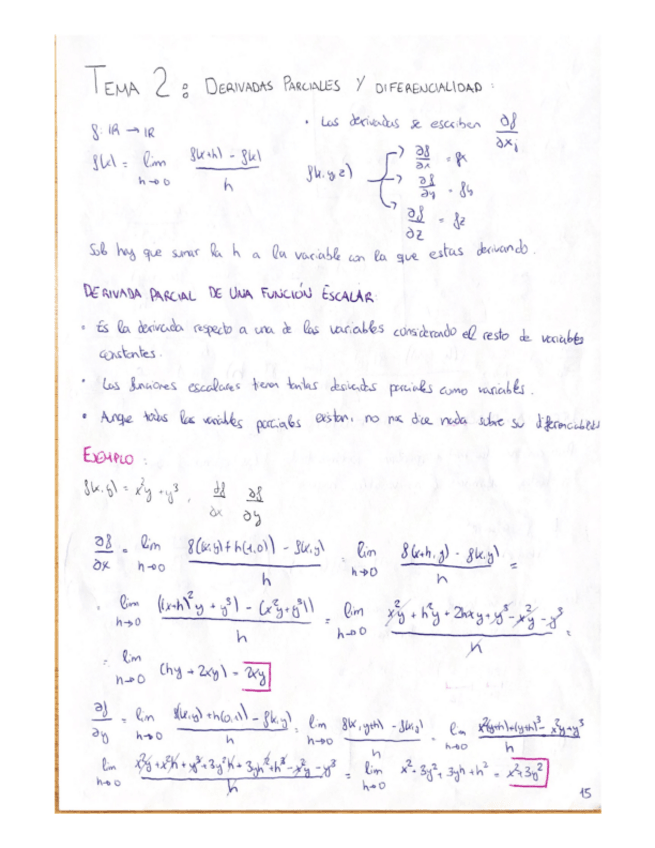 TEMA 2: DERIVADAS PARCIALES Y DIFERENCIALIDAD:
f: IR → IR
· Las derivadas se escriben ∂f/∂xj
f(x) = lim h→0 f(x+h) - f(x) / h
f(x,y,z) → ∂f/∂x = fx
→ ∂f/∂y = fy
→ ∂f/∂z = fz
Solo hay que sumar la h a la variable con la que estas derivando.
DERIVADA PARCIAL DE UNA FUNCIÓN ESCALAR
· Es la derivada respecto a una de las variables considerando el resto de variables
constantes.
· Las funciones escalares tienen tantas derivadas parciales como variables.
· Aunque todas las variables parciales existan, no nos dice nada sobre su diferenciabilidad
EJEMPLO:
f(x,y) = x²y + y³, ∂f/∂x ∂f/∂y
∂f/∂x = lim h→0 f((x,y)+h(1,0)) - f(x,y) / h = lim h→0 f(x+h,y) - f(x,y) / h =
= lim h→0 ((x+h)²y + y³) - (x²y+y³) / h = lim h→0 x²y + h²y + 2hxy + y³ - x²y - y³ / h =
= lim h→0 (hy + 2xy) = 2xy
∂f/∂y = lim h→0 f((x,y)+h(0,1)) - f(x,y) / h = lim h→0 f(x,y+h) - f(x,y) / h = lim h→0 x²(y+h)+(y+h)³ - x²y+y³ / h
lim h→0 x²y + x²h + y³ + 3y²h + 3yh² + h³ - x²y - y³ / h = lim h→0 x² + 3y² + 3yh + h² = x²+3y²
15